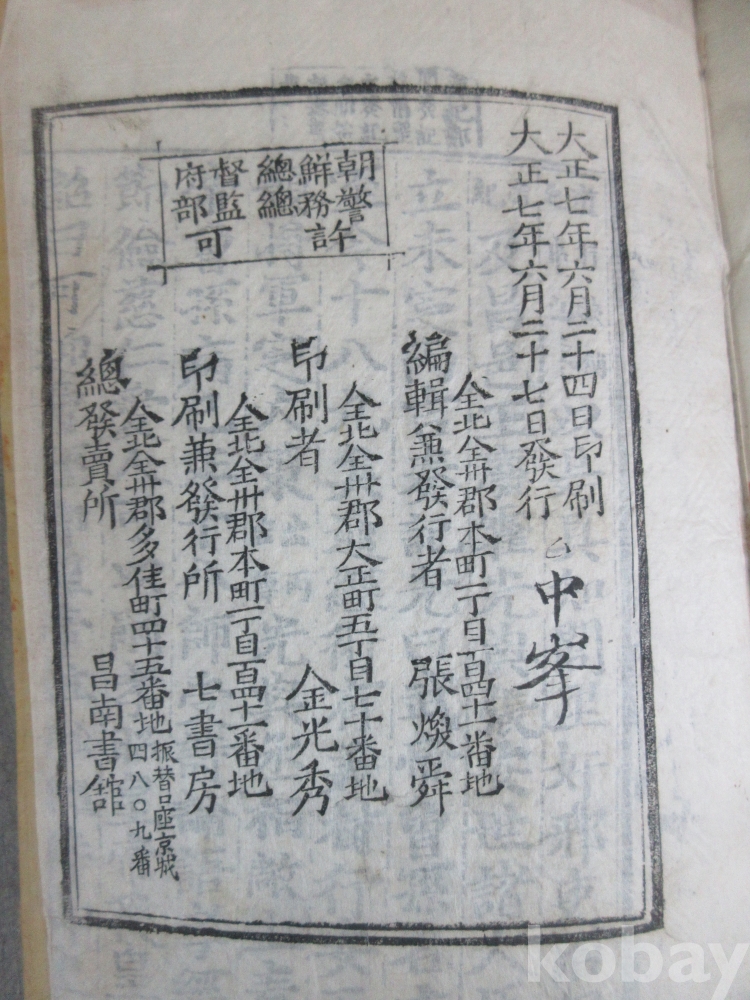 大正七年六月二十四日印刷
大正七年六月二十七日發行
中峯
朝鮮總督府
警務總監部
許可
全北全州郡本町一丁目一百四十一番地
編輯兼發行者 張煥舜
全北全州郡大正町五丁目七十番地
印刷者 金光秀
全北全州郡本町一丁目一百四十一番地
印刷兼發行所 七書房
全北全州郡多佳町四十五番地
振替口座京城
四八〇九番
總發賣所 昌南書舘
kobay